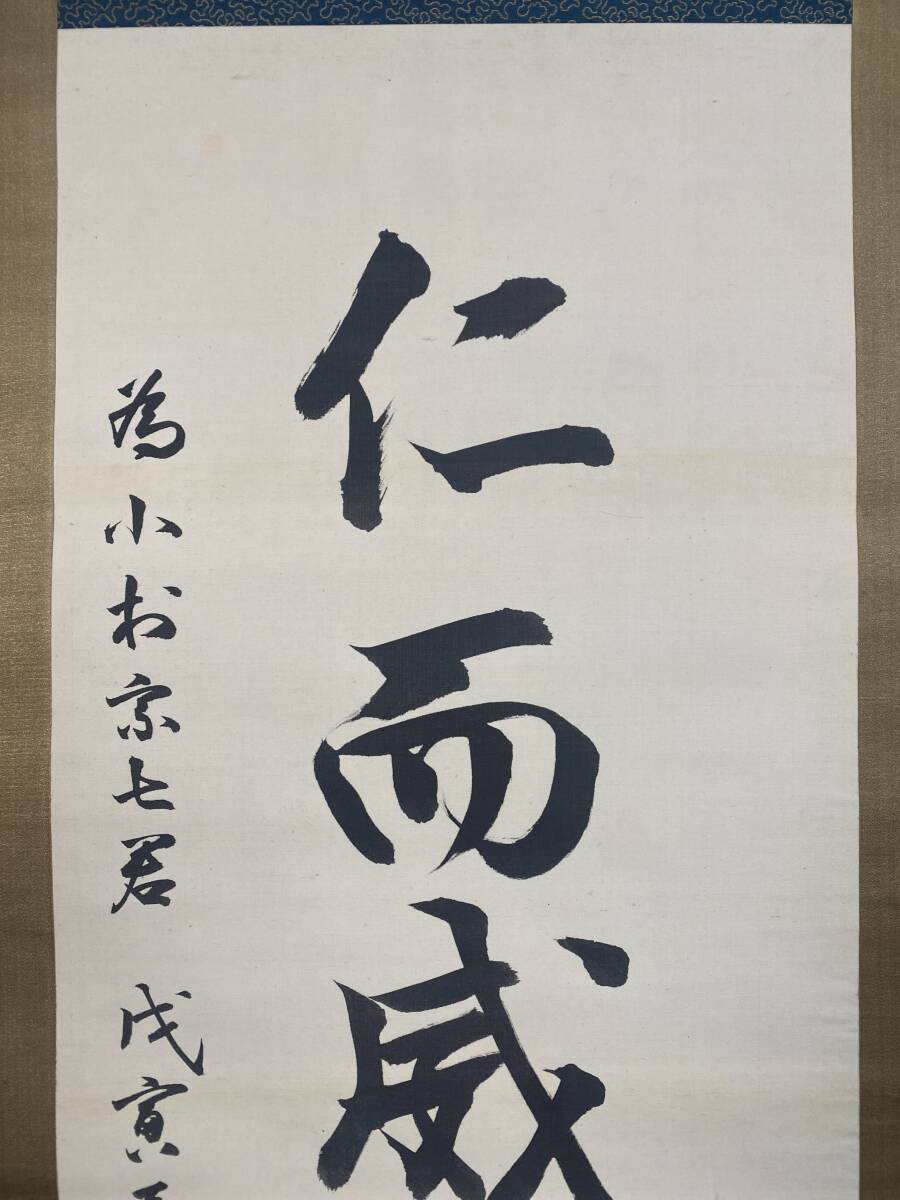 仁而威
為小村宗七君 戊寅